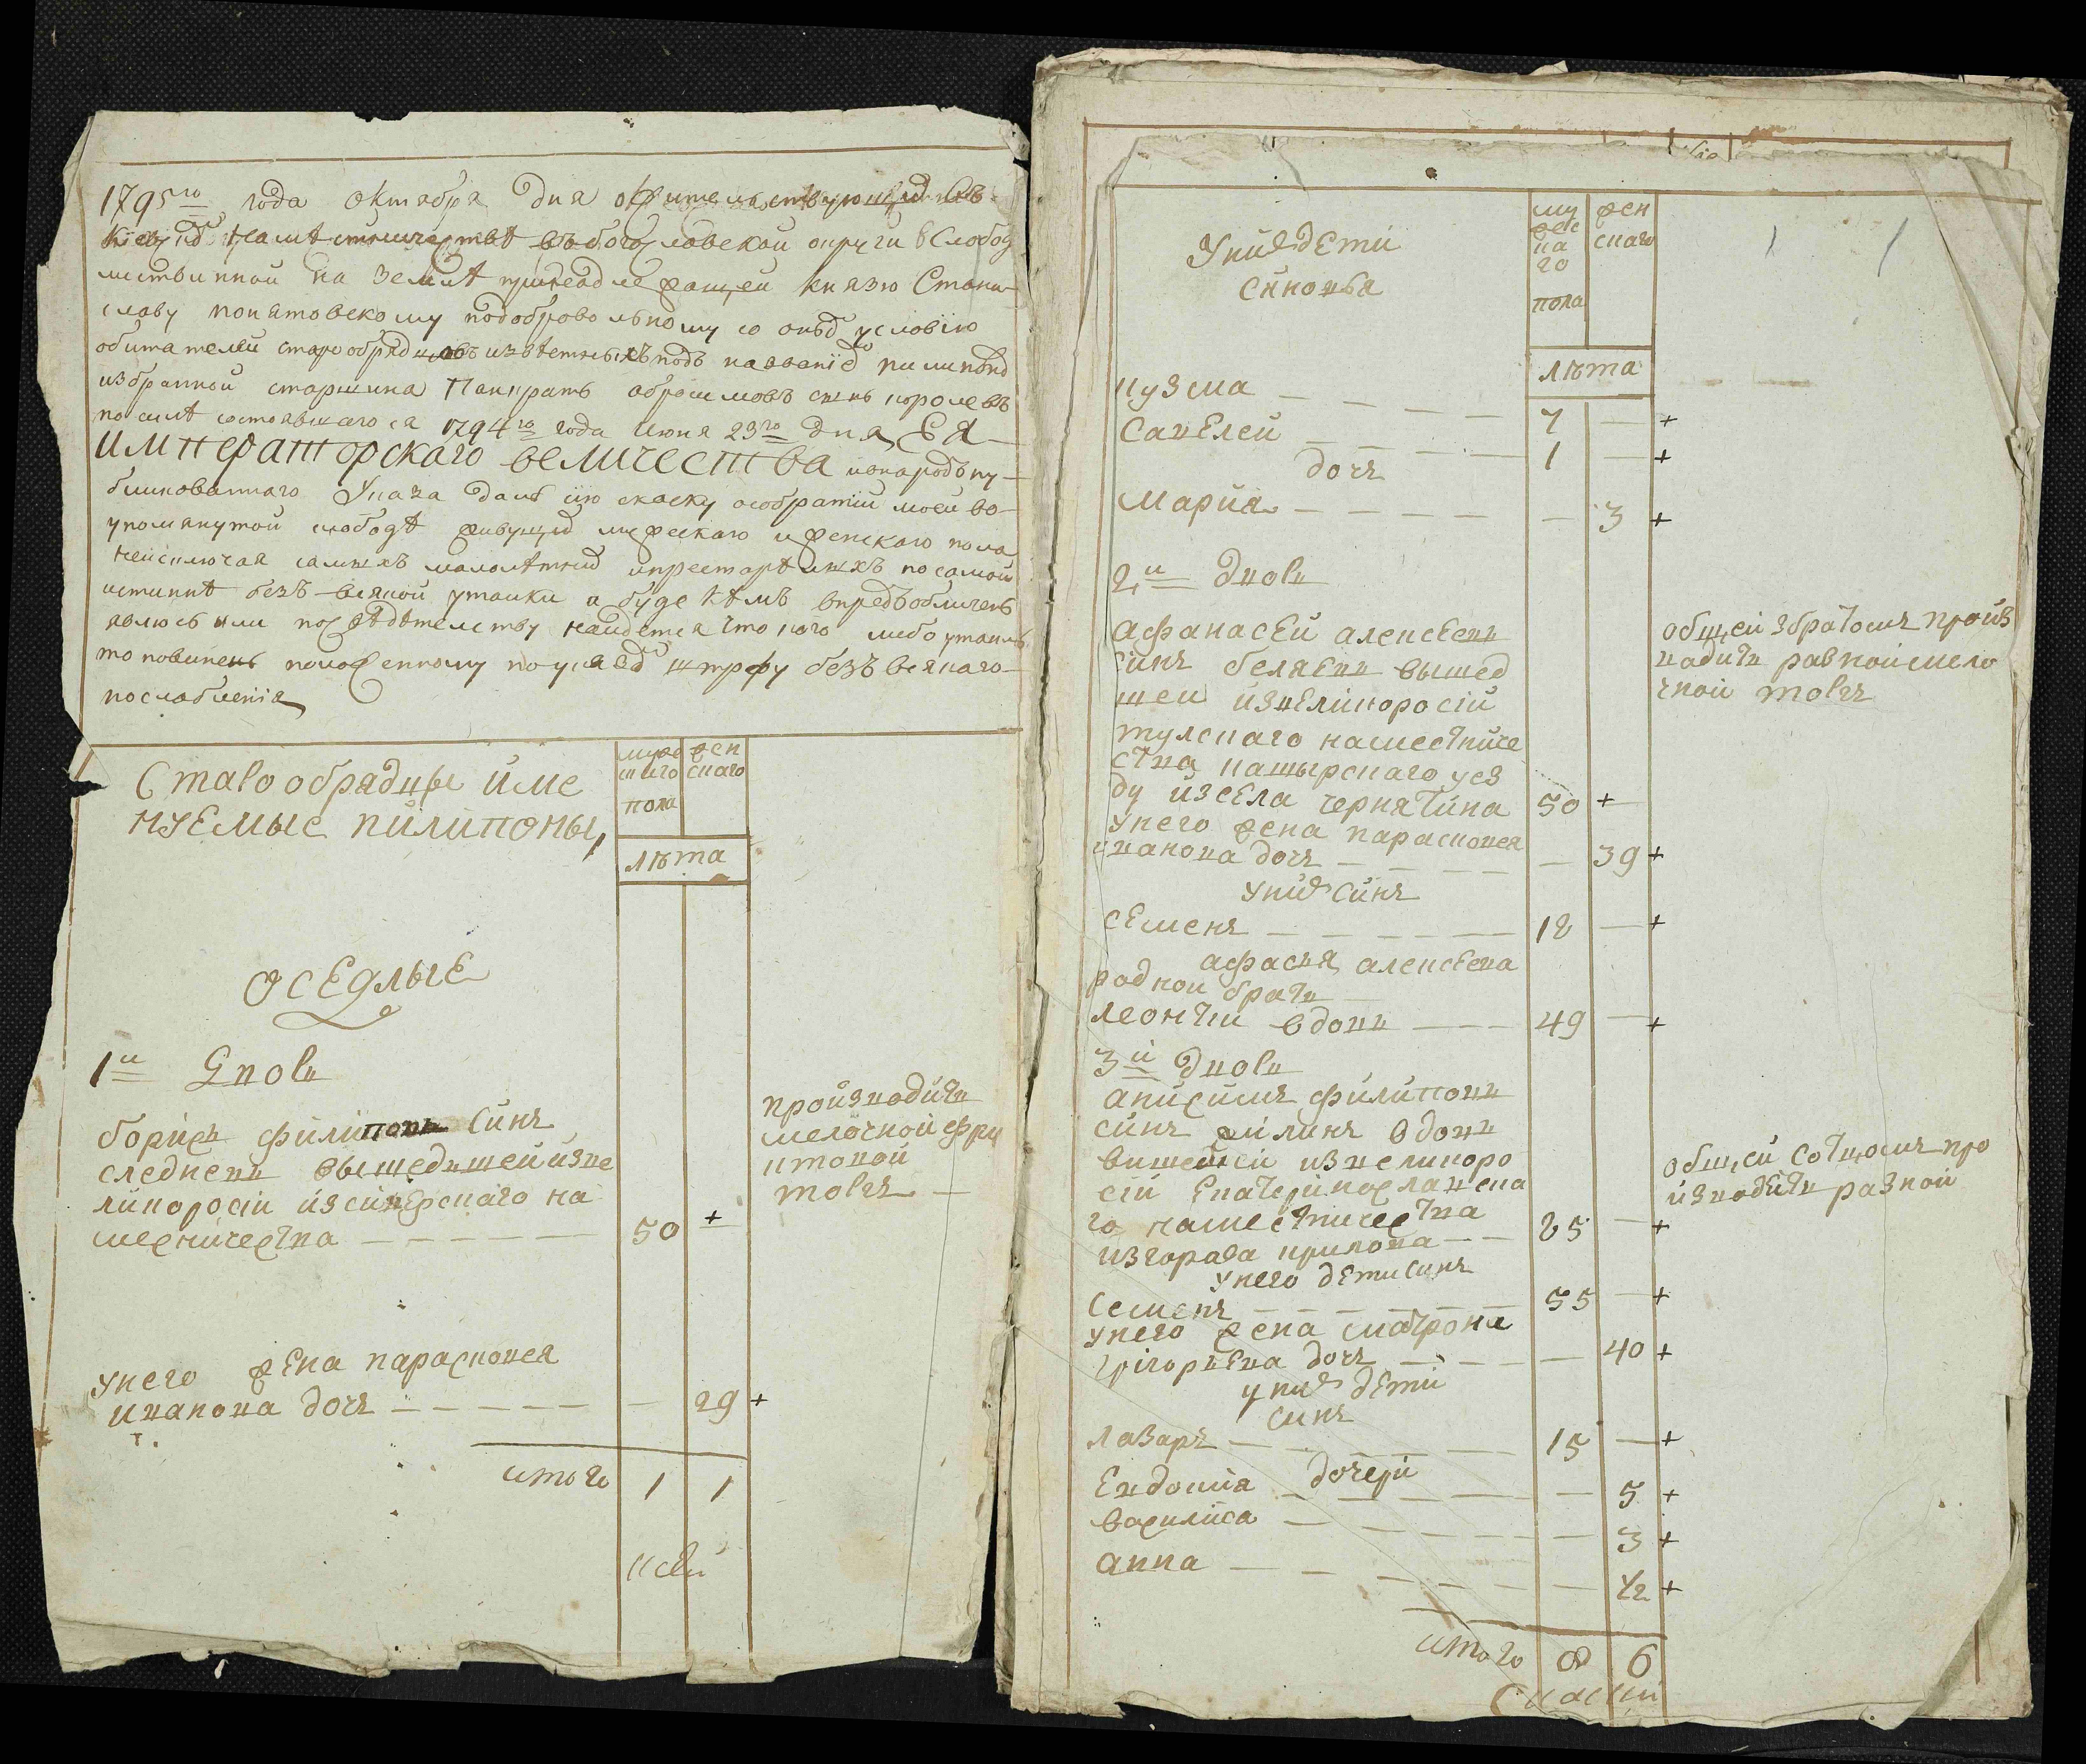 1795го года октября дня о жителствующих въ
киевском намѣстничествѣ въ богуславской округи в Слобод
на землѣ принадлежащей князю Стани
славу понятовскому подобровольному со онѣм условiю
обитателей старообрядцовъ извѣстныхъ подъ названiем пилипонов
избранной старшина Панкратъ абрамовъ сынъ королевъ
по силѣ состоявшагося 1794го года июня 23го дня ЕЯ
императорскаго величества в народъ пу
бликованнаго Указа далъ сiю скаску о собратiи моей во
упомянутой слободѣ живущих мужескаго и женскаго пола
неисключая самыхъ малолѣтних и престарѣлыхъ по самой
истиннѣ безъ всякой утайки а буде кѣмъ впредь обличенъ
явлюсь или по свѣдѣтелству найдется что кого либо утаилъ
то повиненъ положенному по указам штрафу безъ всякаго
послабленiя
Старообрядцы име
нуемые пилипоны
муже
скаго
жен
скаго
пола
лѣта
оседлые
1й Двора
борисъ филиповъ синъ
следневъ вышедъшей изве
ликоросiи из синберскаго на
месничества 50 +
производитъ
мелочной фру
ктовой
торгъ
у него жена парасковея
иванова дочь 29 +
итого 1 1
у них дети
синовья
му
жес
ка
го
жен
скаго
пола
лѣта
кузма 7 +
савелей 1 +
дочь
мария 3 +
2й двора
афанасей алексеевъ
синъ беляевъ вышед
шей из великоросiй
тулскаго наместниче
ства каширскаго уез
ду из села чернятина 50 +
общей з братомъ произ
водитъ разной мело
чной торгъ
у него жена парасковея
иванова дочь 39 +
у них синъ
семенъ 18 +
афасья алексеева
родной братъ
леонтiй вдовъ 49 +
3й двора
анисимъ филиповъ
синъ вдовъ
вишедшей из великоро
сiй екатеринославска
го наместничества 85 +
из города крилова
общей сотцомъ про
изводитъ разной
у него дети синъ
семенъ 55 +
у него жена матрона
григорьева дочь 40 +
у них дети
синъ
лазаръ 15 +
дочери
евдокия 5 +
василиса 3 +
анна 1/2 +
итого 8 6